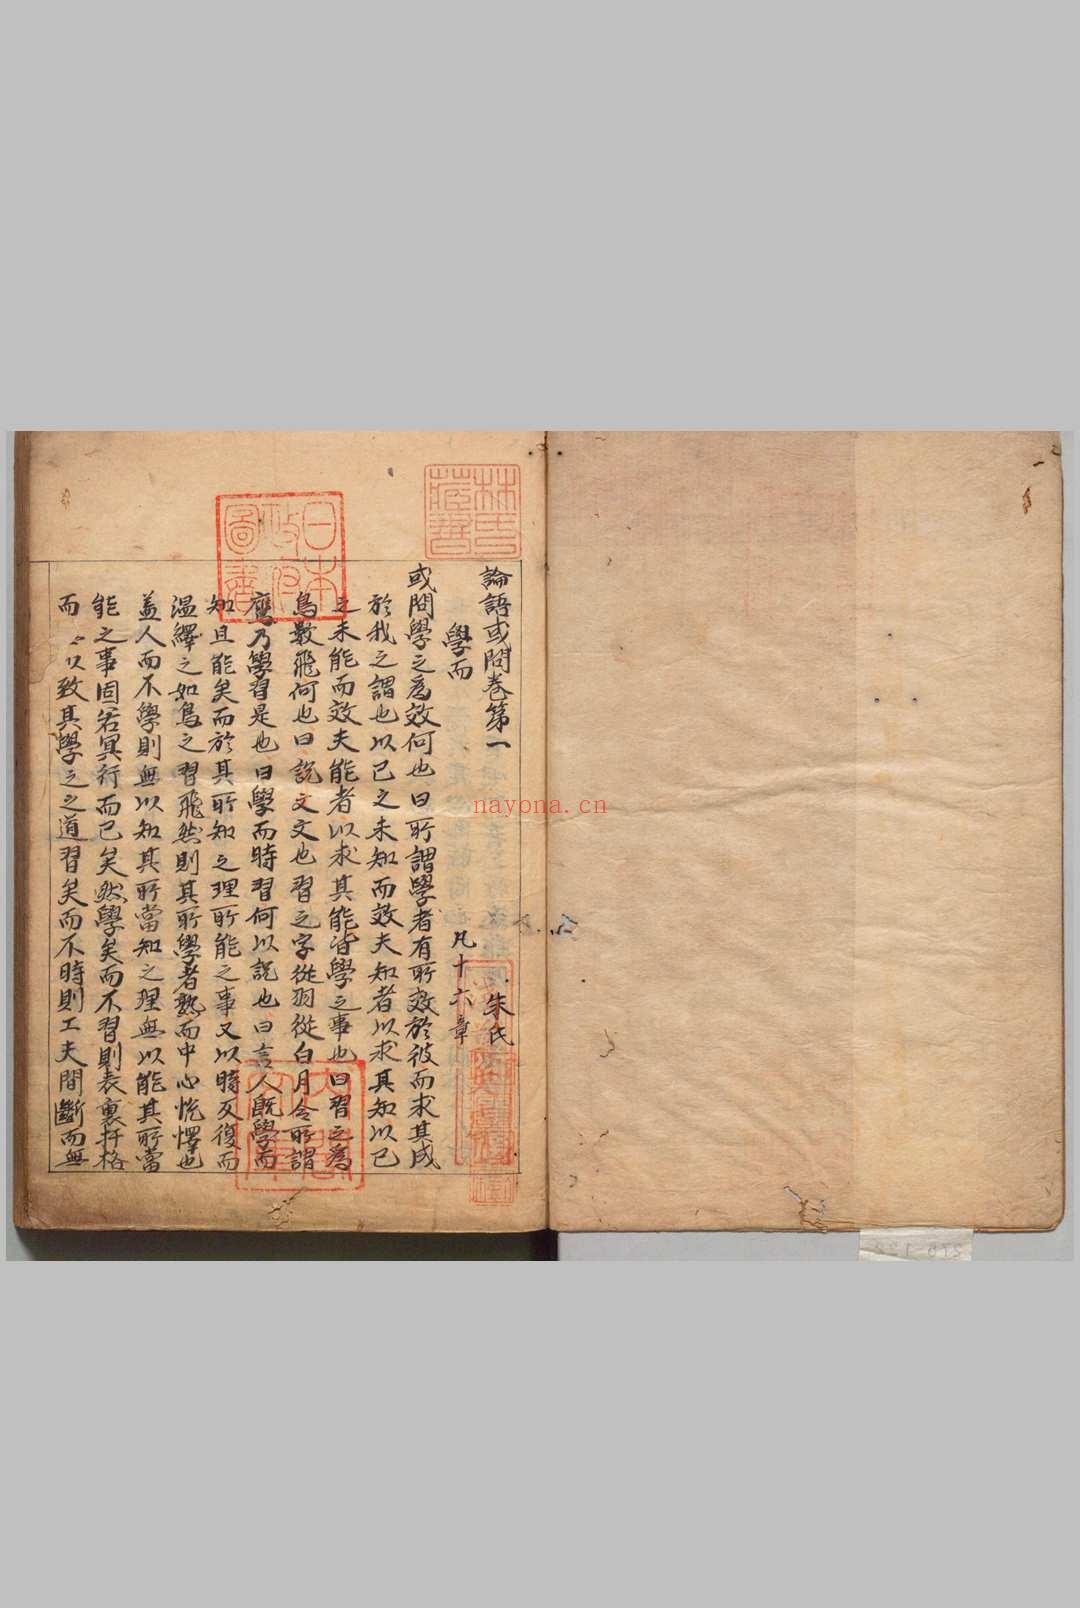 論語或問卷第一 朱氏
學而 凡十六章
或問學之爲效何也曰所謂學者有所效於彼而求其成
於我之謂也以己之未知而效夫知者以求其知以己
之未能而效夫能者以求其能皆學之事也曰習之爲
鳥數飛何也曰說文文也習之字從羽從白月令所謂
鷹乃學習是也曰學而時習何以說也曰言人旣學而
知且能矣而於其所知之理所能之事又以時反復而
温繹之如鳥之習飛然則其所學者熟而中心悅懌也
盖人而不學則無以知其所當知之理無以能其所當
能之事固若冥行而已矣然學矣而不習則表裏扞格
而〻以致其學之之道習矣而不時則工夫間斷而無
林氏藏書
日本政府圖書
nayona.cn